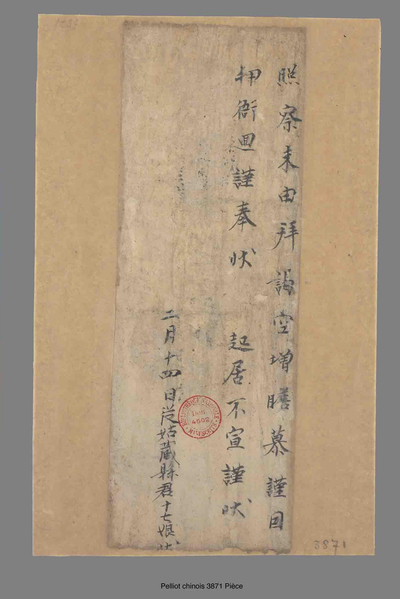 照察未由拜謁空增瞻慕謹因
押衙迴謹奉狀 起居不宣謹狀
二月十四日從姑藏縣君十七娘狀
3871
Pelliot chinois 3871 Pièce